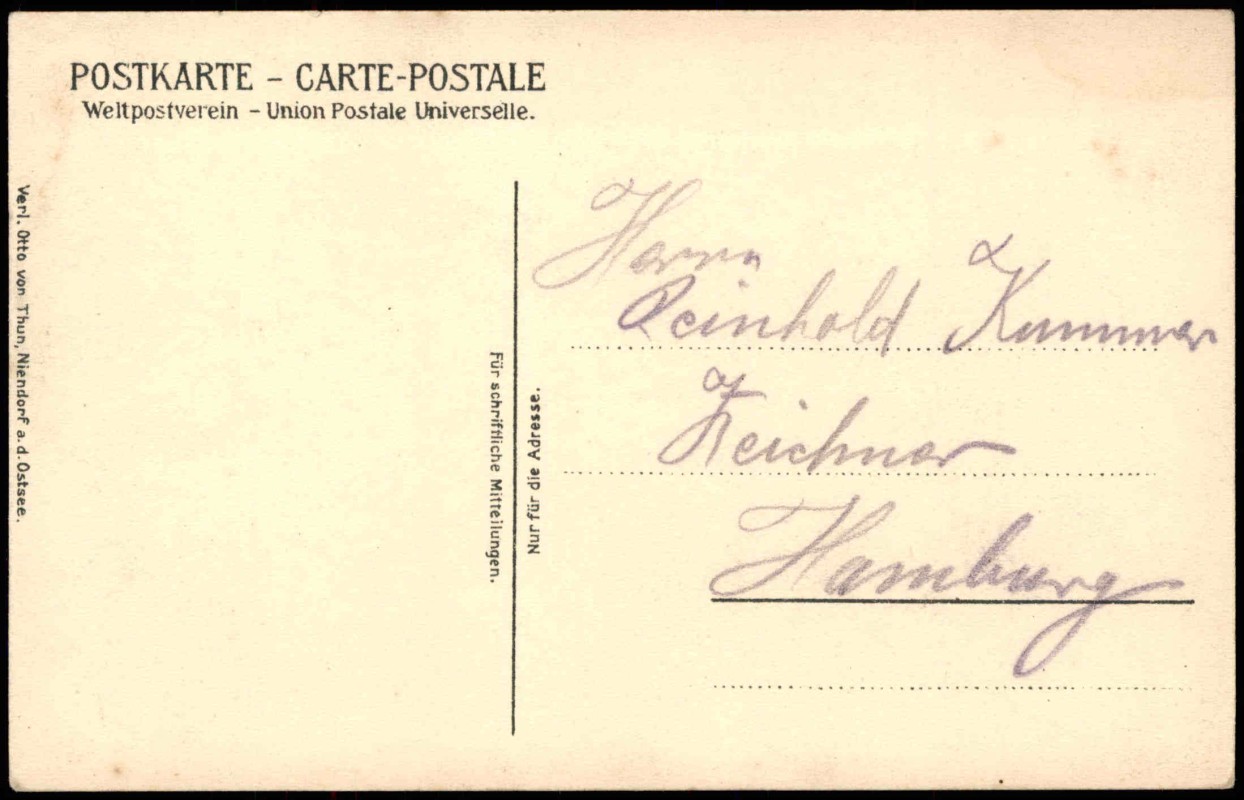 POSTKARTE – CARTE-POSTALE
Weltpostverein – Union Postale Universelle.
Verl. Otto von Thun, Niendorf a. d. Ostsee.
Für schriftliche Mitteilungen.
Nur für die Adresse.
Herrn
Reinhold Kummer
Zeichner
Hamburg